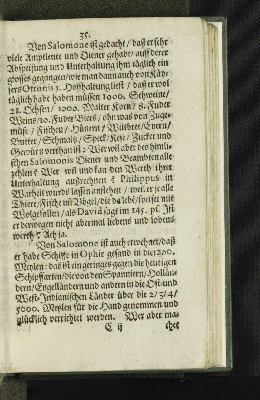 35.
Von Salomone ist gedacht / daß er sehr
viele Amptleute und Diener gehabt / auff derer
Abspeisung und Unterhaltung ihm täglich ein
grosses gegangen / wie man dann auch von Käy-
sers Ottonis 3. Hoffhaltung liest / daß er wol
täglich habe haben müssen 1000. Schweine /
28. Ochsen / 1000. Malter Korn / 8. Fuder
Weins / 10. Fuder Biers / ohn was von Zuge-
müse / Fischen / Hünern / Wiltbret / Eyern /
Butter / Schmaltz / Speck / Kese / Zucker und
Gewürs verthan ist: Wer wil aber des himli-
schen Salomonis Diener und Beambten alle
zehlen? Wer wil und kan den Werth ihrer
Unterhaltung außrechnen? Philippus in
Warheit wurds lassen anstehen / weil er je alle
Thiere / Fische und Vögel / die da lebt / speiset mit
Wolgefallen / als David sagt im 145. ps. Ist
er derwegen nicht abermal liebens und lobens
werth? Ach ja.
Von Salomone ist auch erwehnet / daß
er habe Schiffe in Ophir gesand in die 1200.
Meylen: das ist ein geringes gegen die heutigen
Schiffarten / die von den Spanniern / Hollän-
dern / Engelländern und andern in die Ost- und
West-Indianischen Länder über die 2 / 3 / 4 /
5000. Meylen für die Hand genommen und
glücklich verrichtet werden. Wer aber ma-
C ij chet